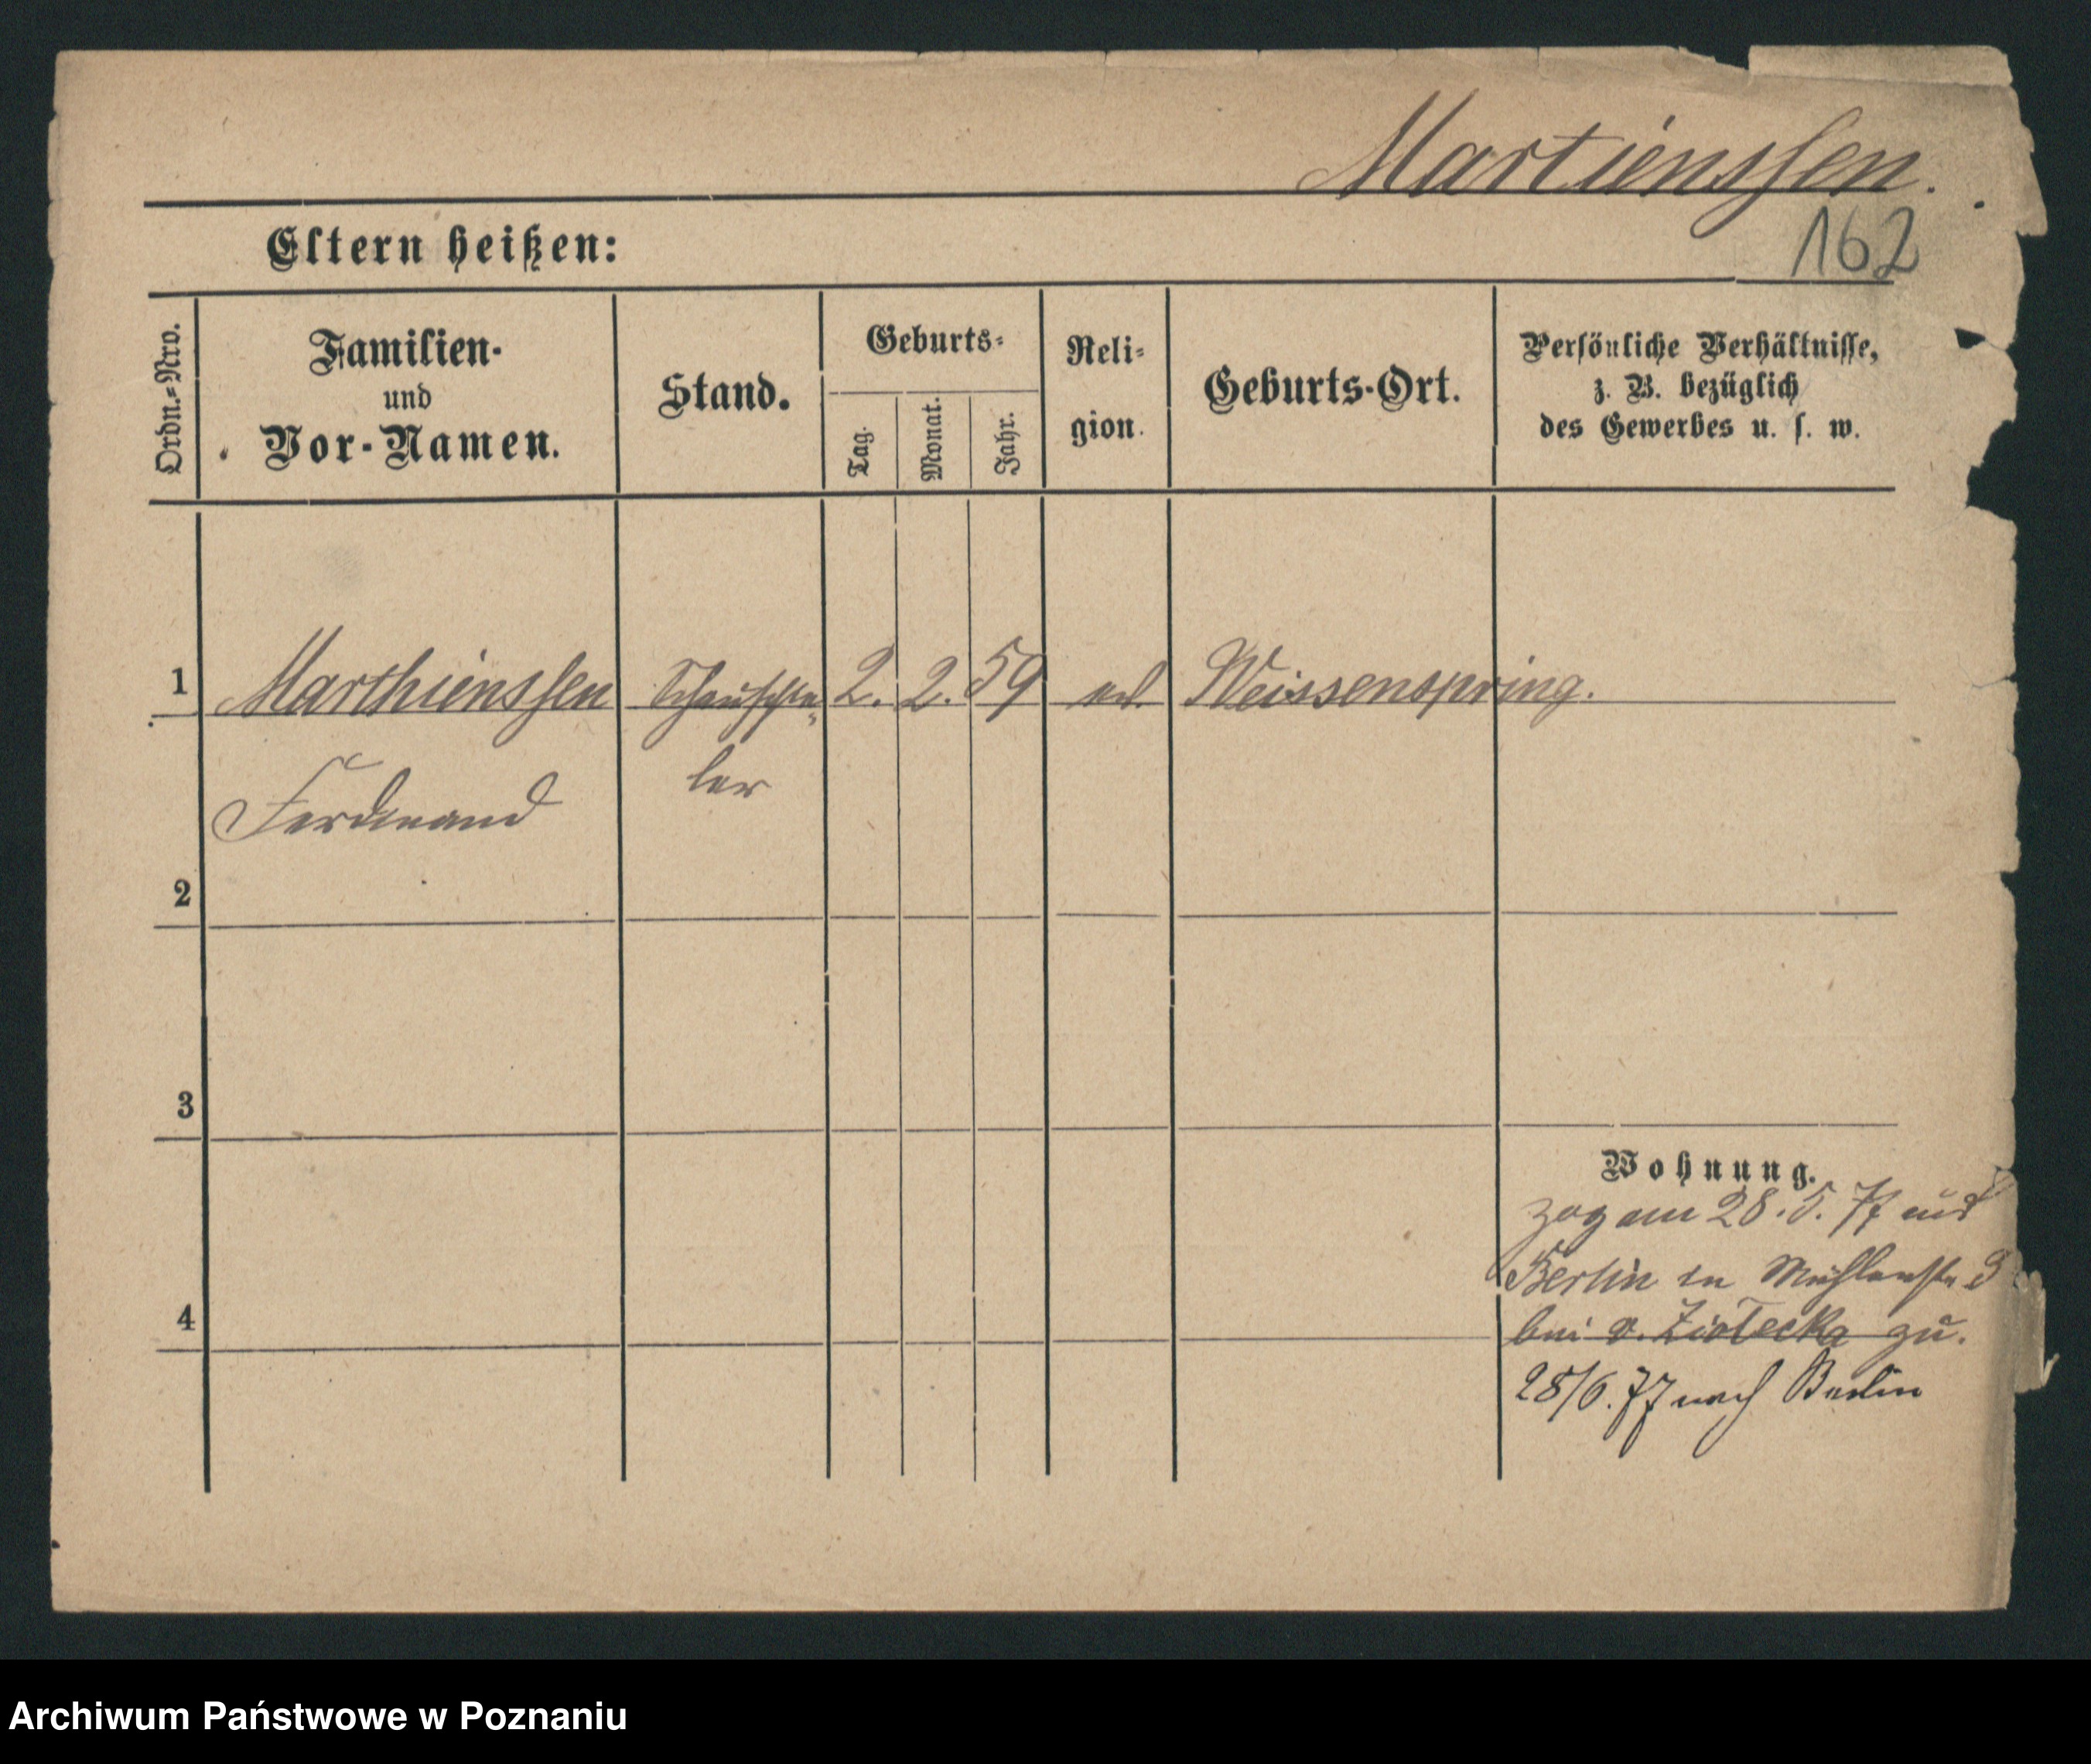 Martienssen.
162
Eltern heißen:
Ordn.-Nro.
Familien-
und
Vor-Namen.
Stand.
Geburts-
Tag.
Monat.
Jahr.
Reli-
gion.
Geburts-Ort.
Persönliche Verhältnisse,
z. B. bezüglich
des Gewerbes u. s. w.
1
Marthienssen
Schauspie-
2. 2. 59
Weissenspring.
ler
Ferdinand
2
3
Wohnung.
zog am 28. 5. 77 aus
Berlin in Mühlenstr
4
bei v. Ziolecka zu.
28/6. 77 nach Berlin
Archiwum Państwowe w Poznaniu